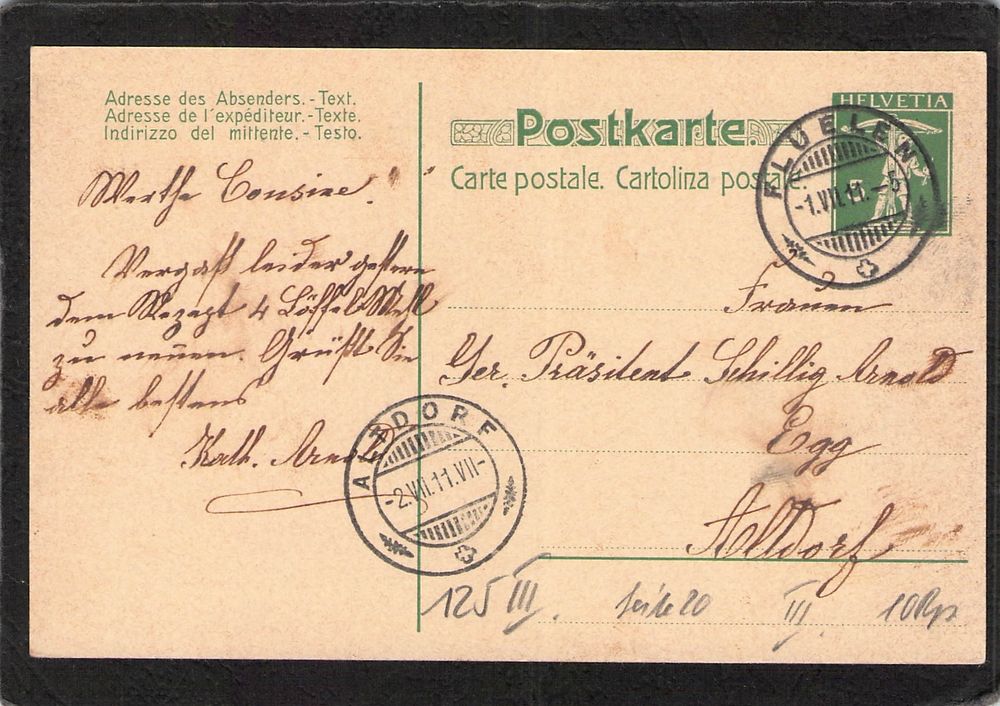 Adresse des Absenders.-Text.
Adresse de l'expéditeur.-Texte.
Indirizzo del mittente.-Testo.
Postkarte.
Carte postale. Cartolina postale.
HELVETIA
FLUELEN
-1.VII.11.-5
Werthe Cousine!
Vergaß leider gestern
dem Rezept 4 Löffel Mehl
zu nennen. Grüßt Sie
alle bestens
Kath. Arnold
Frauen
Ger. Präsitent Schillig Arnold
Egg
Altdorf
ALTDORF
-2.VII.11.VII-
125 III.
Seite 20
III.
10 Rp